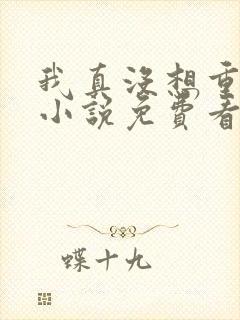 我真没想重
小說免費看
蝶十九